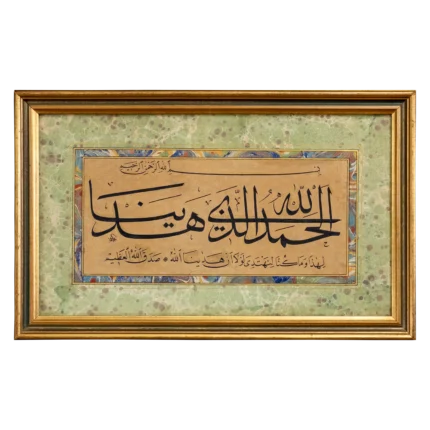 بسم الله الرحمن الرحيم
الحمد لله الذي هدينا
لهذا وما كنا لنهتدي لولا ان هدينا الله * صدق الله العظيم